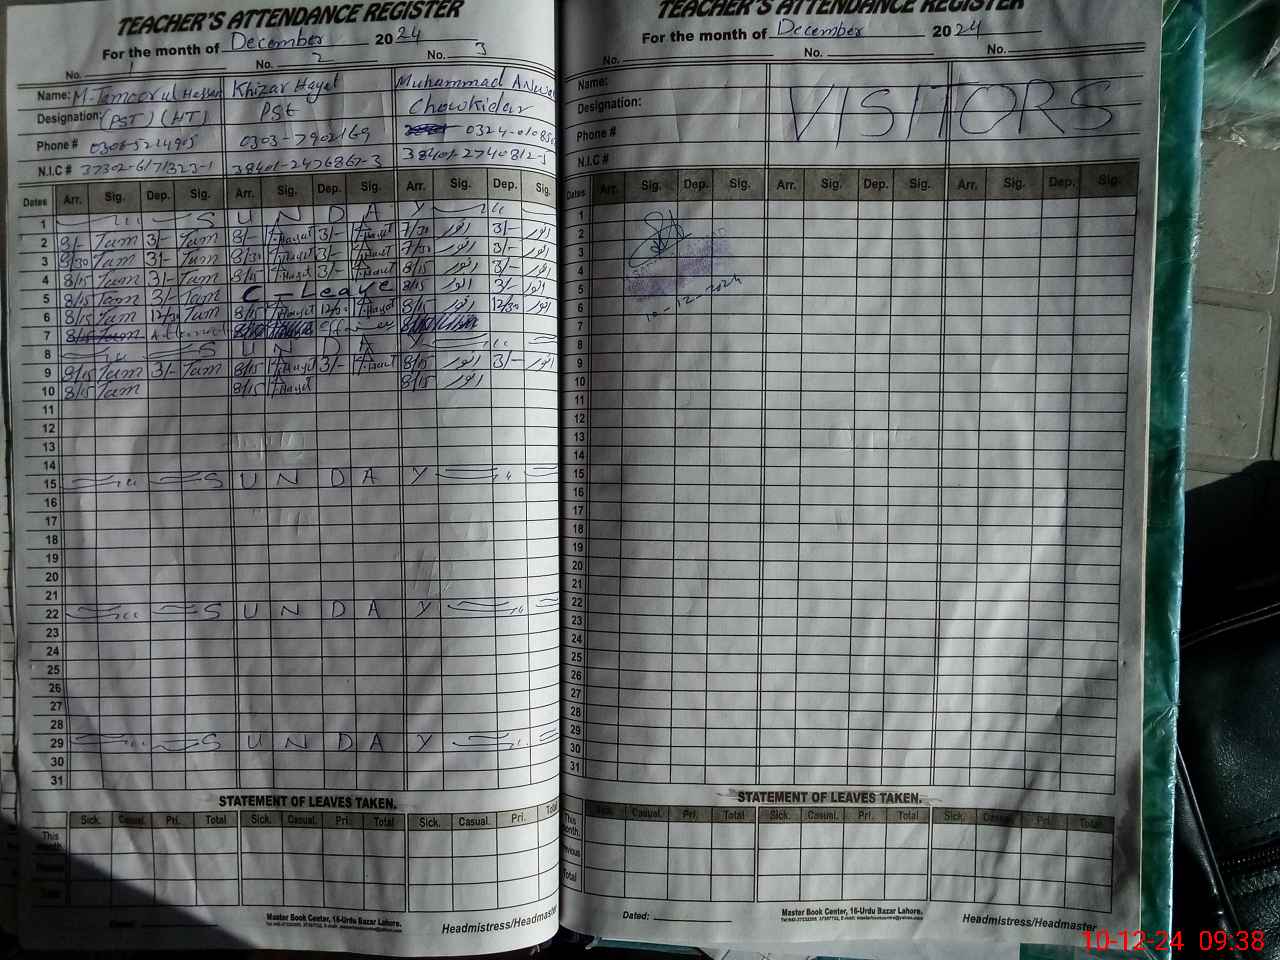 TEACHER'S ATTENDANCE REGISTER
For the month of December 2024
No. 1 No. 2 No. 3
Name: M. Tamoor ul Hassan Khizar Hayat Muhammad
Designation: (PST) (HT) PST Chowkidar
Phone # 0303-7902169
N.I.C #
Dates Arr. Sig. Dep. Sig. Arr. Sig. Dep. Sig. Arr. Sig. Dep. Sig.
1 S U N D A Y
2 8/- Tam 3/- Tam 8/- Hayat 3/- Hayat 7/30 انور 3/- انور
3 8/30 Tam 3/- Tam 8/30 Hayat 3/- Hayat 7/30 انور 3/- انور
4 8/15 Tam 3/- Tam 8/15 Hayat 3/- Hayat 8/15 انور 3/- انور
5 8/15 Tam 3/- Tam C - Leave 8/15 انور 3/- انور
6 8/15 Tam 12/30 Tam 8/15 Hayat 12/30 Hayat 8/15 انور 12/30 انور
7
8 S U N D A Y
9 8/15 Tam 3/- Tam 8/15 Hayat 3/- Hayat 8/15 انور 3/- انور
10 8/15 Tam 8/15 Hayat 8/15 انور
11
12
13
14
15 S U N D A Y
16
17
18
19
20
21
22 S U N D A Y
23
24
25
26
27
28
29 S U N D A Y
30
31
STATEMENT OF LEAVES TAKEN.
Sick. Casual. Pri. Total Sick. Casual. Pri. Total Sick. Casual. Pri. Total
This month.
Total
Master Book Center, 16-Urdu Bazar Lahore.
Headmistress/Headmaster
TEACHER'S ATTENDANCE REGISTER
For the month of December 2024
No. No. No.
Name: VISITORS
Designation:
Phone #
N.I.C #
Dates Arr. Sig. Dep. Sig. Arr. Sig. Dep. Sig. Arr. Sig. Dep. Sig.
1
2
3
4
5
6 10-12-2024
7
8
9
10
11
12
13
14
15
16
17
18
19
20
21
22
23
24
25
26
27
28
29
30
31
STATEMENT OF LEAVES TAKEN.
Sick. Casual. Pri. Total Sick. Casual. Pri. Total Sick. Casual. Pri. Total
This month.
Previous
Total
Dated:
Master Book Center, 16-Urdu Bazar Lahore.
Headmistress/Headmaster
10-12-24 09:38